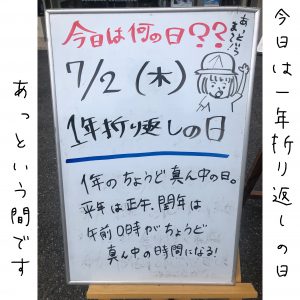 今日は一年折り返しの日
あっという間です
今日は何の日??
7/2(木)
1年折り返しの日
1年のちょうど真ん中の日。
平年は正午、閏年は
午前0時がちょうど
真ん中の時間になる!